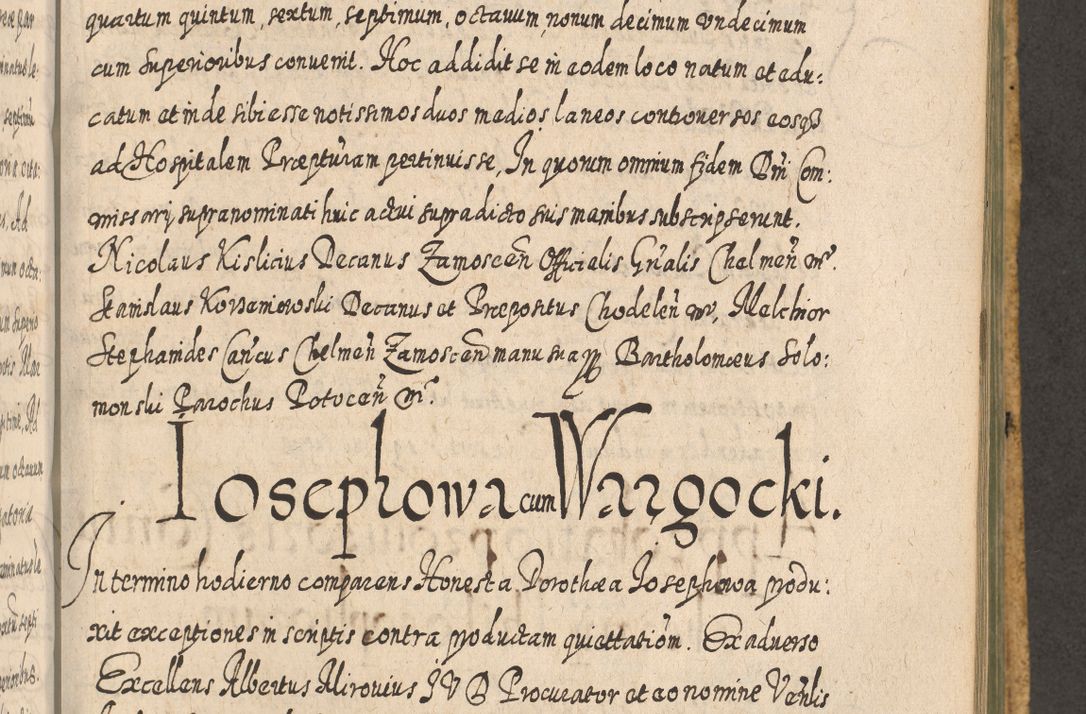 quartum quintum, sextum, septimum, octauum, nonum decimum vndecimum
cum Superioribus conuenit. Hoc addidit se in eodem loco natum et edu:
catum et inde sibi esse notissimos duos medios laneos controuersos eosq3
ad Hospitalem Præpturam pertinuisse, In quorum omnium fidem Dni Com:
missarij supranominati huic actui supradicto suis manibus subscripserunt.
Nicolaus Kislicius Decanus Zamoscen Officialis Gnalis Chelmen mp.
Stanislaus Korzeniowski Decanus et Præpositus Chodelen mp, Melchior
Stephanides Cancus Chelmen Zamoscen manu sua pp Bartholomæus Solo:
monski Parochus Potocen mp
Iosephowa cum Wargocki.
In termino hodierno comparens Honesta Dorothæa Iosephowa produ:
xit exceptiones in scriptis contra productam quiettationem. Ex aduerso
Excellens Albertus Mirouius I V D Procurator et eo nomine Vnblis